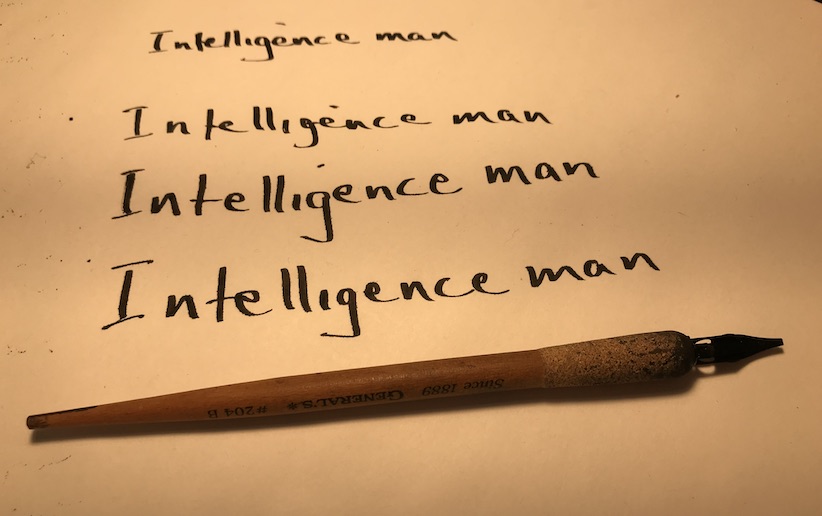 Intelligence man
Intelligence man
Intelligence man
Intelligence man
Since 1889 GENERAL'S* #204 B